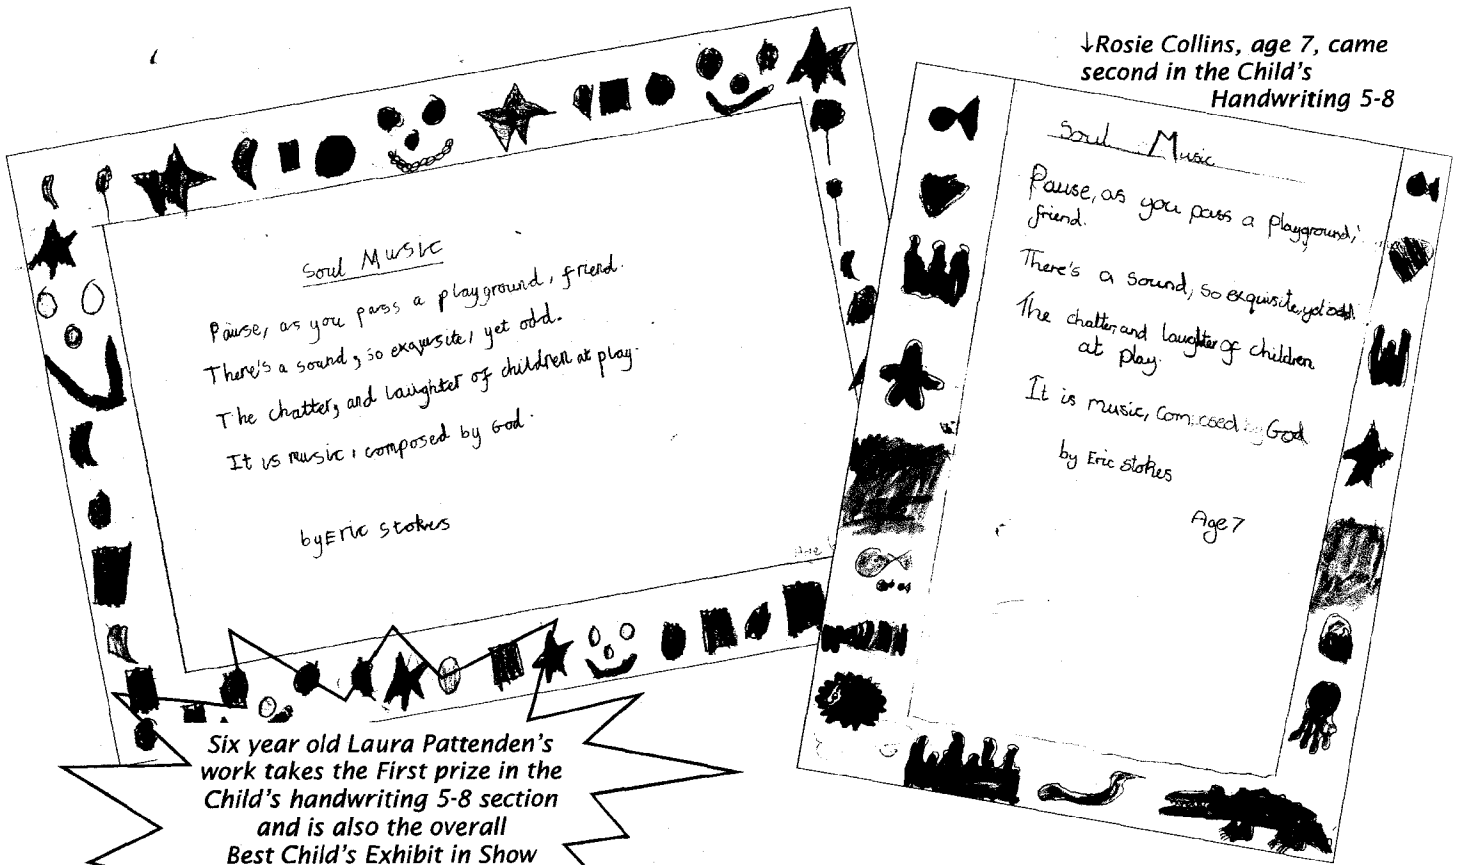 ↓Rosie Collins, age 7, came
second in the Child's
Handwriting 5-8
Soul Music
Pause, as you pass a playground, friend.
There's a sound, so exquisite, yet odd.
The chatter, and laughter of children at play.
It is music, composed by God.
by Eric Stokes
Soul Music
Pause, as you pass a playground,
friend.
There's a sound, so exquisite, yet odd.
The chatter, and laughter of children
at play.
It is music, Composed by God
by Eric Stokes
Age 7
Six year old Laura Pattenden's
work takes the First prize in the
Child's handwriting 5-8 section
and is also the overall
Best Child's Exhibit in Show